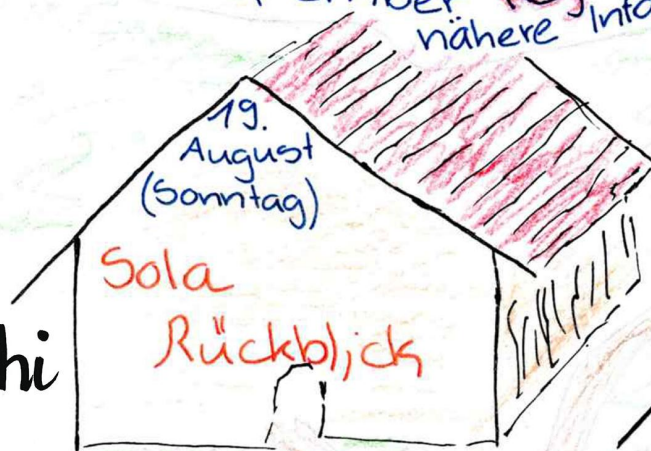 nähere
19.
August
(Sonntag)
Sola
Rückblick
hi